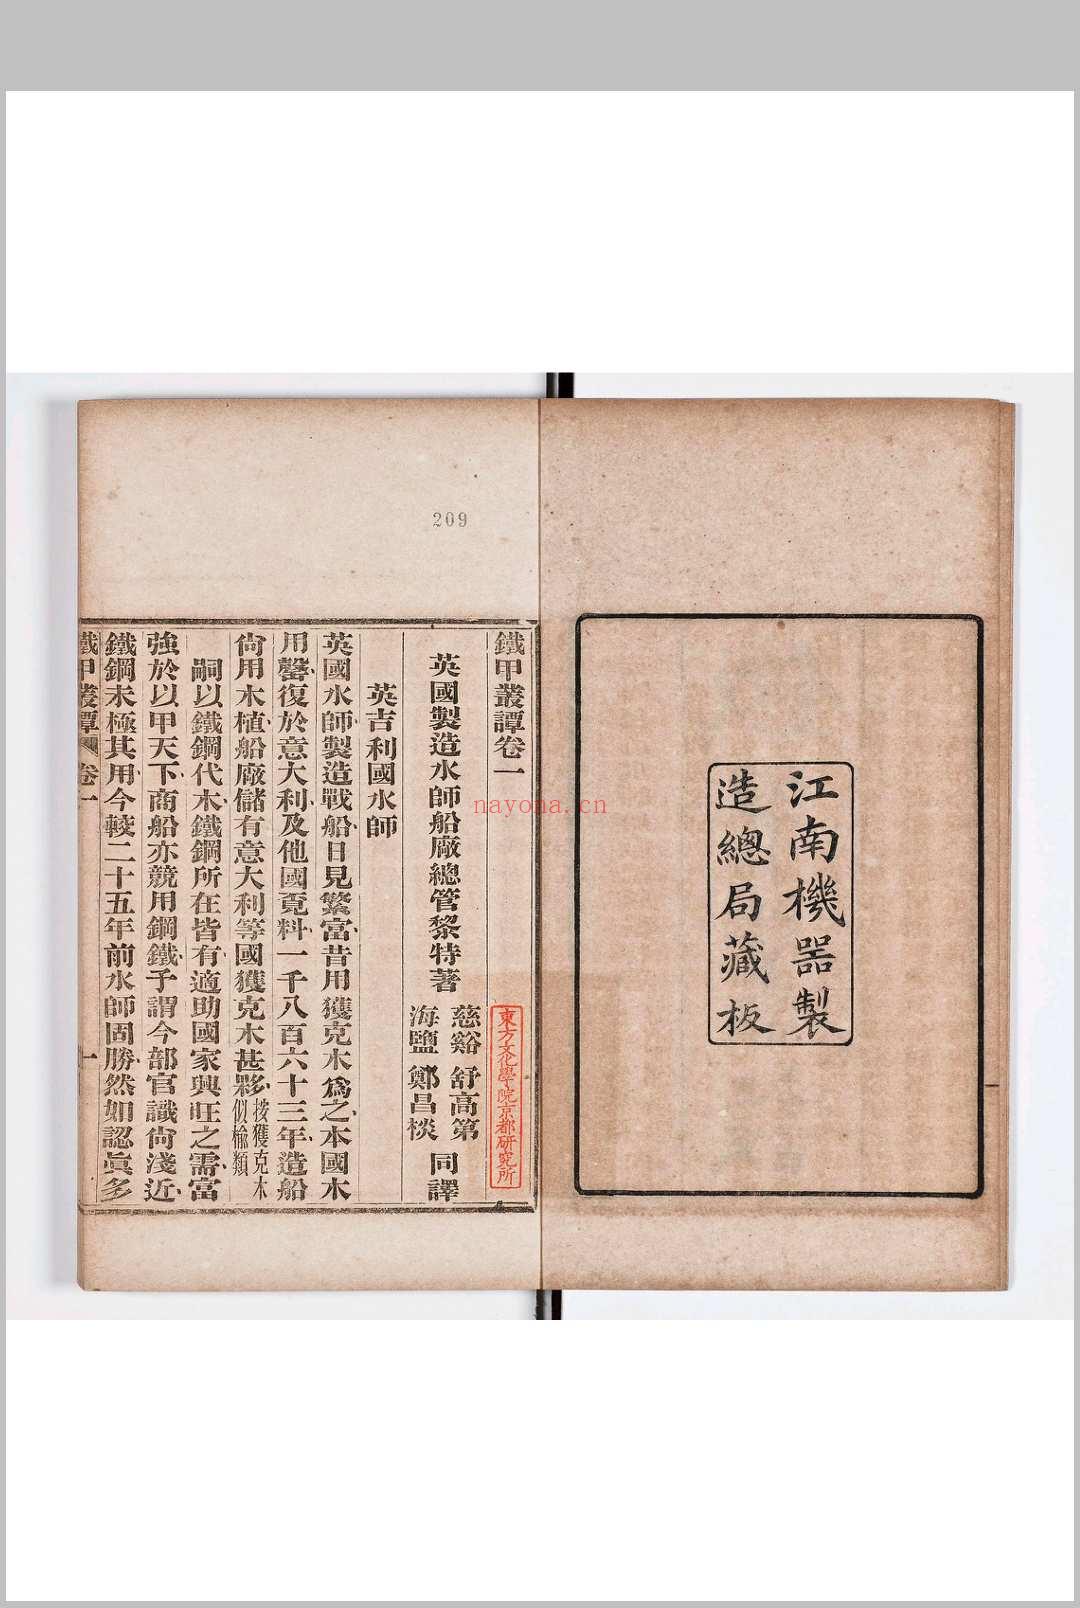 江南機器製
造總局藏板
209
鐵甲叢譚卷一
英國製造水師船廠總管黎特著
慈谿 舒高第
海鹽 鄭昌棪
同譯
東方文化學院京都研究所
英吉利國水師
英國水師製造戰船日見繁富昔用獲克木爲之本國木
用罄復於意大利及他國覔料一千八百六十三年造船
尙用木植船廠儲有意大利等國獲克木甚夥按獲克木
似楡類
嗣以鐵鋼代木鐵鋼所在皆有適助國家興旺之需富
強於以甲天下商船亦競用鋼鐵予謂今部官識尙淺近
鐵鋼未極其用今較二十五年前水師固勝然如認眞多
鐵甲叢譚 卷一
一
nayona.cn